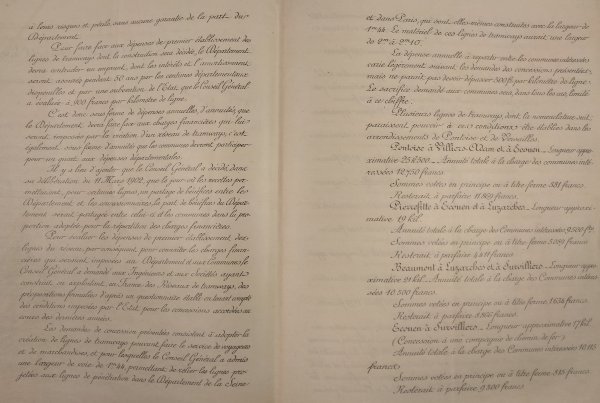 à leurs risques et périls sans aucune garantie de la part du
Département.
Pour faire face aux dépenses de premier établissement des
lignes de tramways dont la construction sera décidée, le Département
devra contracter un emprunt, dont les intérêts et l'amortissement
seront assurés pendant 50 ans par les centimes départementaux
disponibles et par une subvention de l'Etat, que le Conseil Général
a évaluée à 900 francs par kilomètre de ligne.
C'est donc sous forme de dépenses annuelles, d'annuités, que
le Département devra faire face aux charges financières qui lui
seront imposées par la création d'un réseau de tramways, c'est
également sous forme d'annuités que les communes devront participer
pour un quart aux dépenses départementales.
Il y a lieu d'ajouter que le Conseil Général a décidé dans
sa délibération du 11 Mars 1902, que le jour où les recettes per-
mettraient, pour certaines lignes, un partage de bénéfices entre les
Département et les concessionnaires, la part de bénéfices du Dépar-
tement serait partagée entre celui-ci et les communes dans la
proportion adoptée pour la répartition des charges financières.
Pour évaluer les dépenses de premier établissement des
lignes du réseau, par conséquent, pour connaître les charges finan-
cières qui seraient imposées au Département et aux Communes, le
Conseil Général a demandé aux Ingénieurs et aux Sociétés ayant
construit ou exploitant en France des Réseaux de tramways, des
propositions formelles d'après un questionnaire établi en tenant compte
des conditions imposées par l'Etat pour les concessions accordées au
cours des dernières années.
Les demandes de concession présentées consistent à adopter la
création de lignes de tramways pouvant faire le service de voyageurs
et de marchandises, et pour lesquelles le Conseil Général a admis
une largeur de voie de 1m44, permettant de relier les lignes pro-
jetées aux lignes de pénétration dans le Département de la Seine
et dans Paris, qui sont elles-mêmes construites avec la largeur de
1m44. Le matériel de ces lignes de tramways aurait une largeur
de 2m à 2m10.
La dépense annuelle à répartir entre les communes intéressées
varie légèrement suivant les demandes des concessions présentées,
mais ne paraît pas devoir dépasser 500 fr par kilomètre de ligne.
Le sacrifice demandé aux communes est, dans tous les cas, limité
à ce chiffre.
Plusieurs lignes de tramways, dont la nomenclature suit,
paraissent pouvoir à ces conditions être établies dans les
arrondissements de Pontoise et de Versailles.
Pontoise à Villiers-Adam et à Ecouen _ Longueur appro-
ximative 25 k 500 _ Annuité totale à la charge des communes inté-
ressées 12,750 francs
Sommes votées en principe ou à titre ferme 881 francs.
Resterait à parfaire 11.869 francs.
Pierrefitte à Ecouen et à Luzarches _ Longueur approxi-
mative 19 kil.
Annuité totale à la charge des Communes intéressées 9.500 frs
Sommes votées en principe ou à titre ferme 5.089 francs
Resterait à parfaire 4.411 francs.
Beaumont à Luzarches et à Survilliers _ Longueur appro-
ximative 21 kil _ Annuité totale à la charge des Communes intéres-
sées 10.500 francs.
Sommes votées en principe ou à titre ferme 1.635 francs.
Resterait à parfaire 8.865 francs.
Ecouen à Survilliers _ Longueur approximative 17 kil
(Concession à une compagnie de chemin de fer)
Annuité totale à la charge des Communes intéressées 10.115
francs
Sommes votées en principe ou à titre ferme 815 francs
Resterait à parfaire 9.300 francs